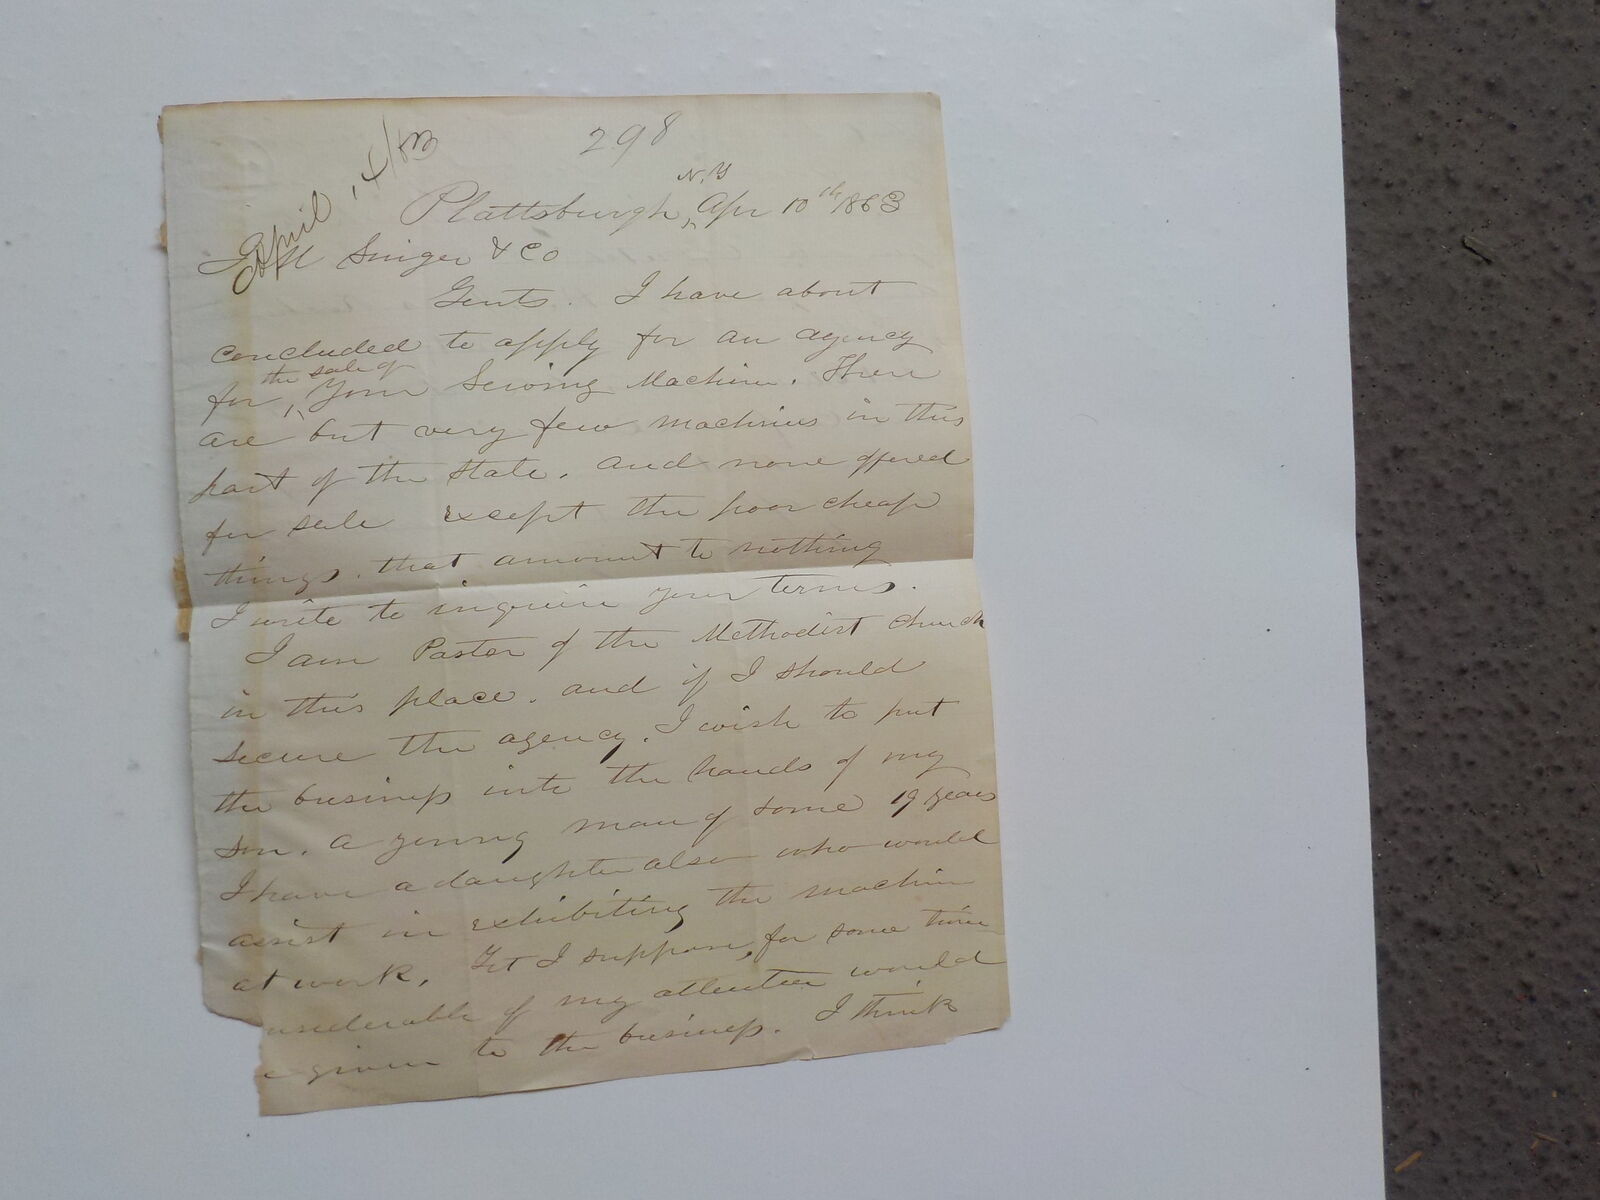 298
April 14/63
Plattsburgh, N.Y Apr 10th 1863
I M Singer & Co
Gents. I have about
concluded to apply for an agency
for the sale of Your Sewing Machine. There
are but very few machines in this
part of the State. and none offered
for sale except the poor cheap
things. that amount to nothing
I write to inquire your terms.
I am Pastor of the Methodist Church
in this place. and if I should
secure the agency. I wish to put
the business into the hands of my
son. a young man of some 19 years
I have a daughter also who would
assist in exhibiting the machine
at work. Yet I suppose, for some time
nsiderable of my attention would
e given to the business. I think